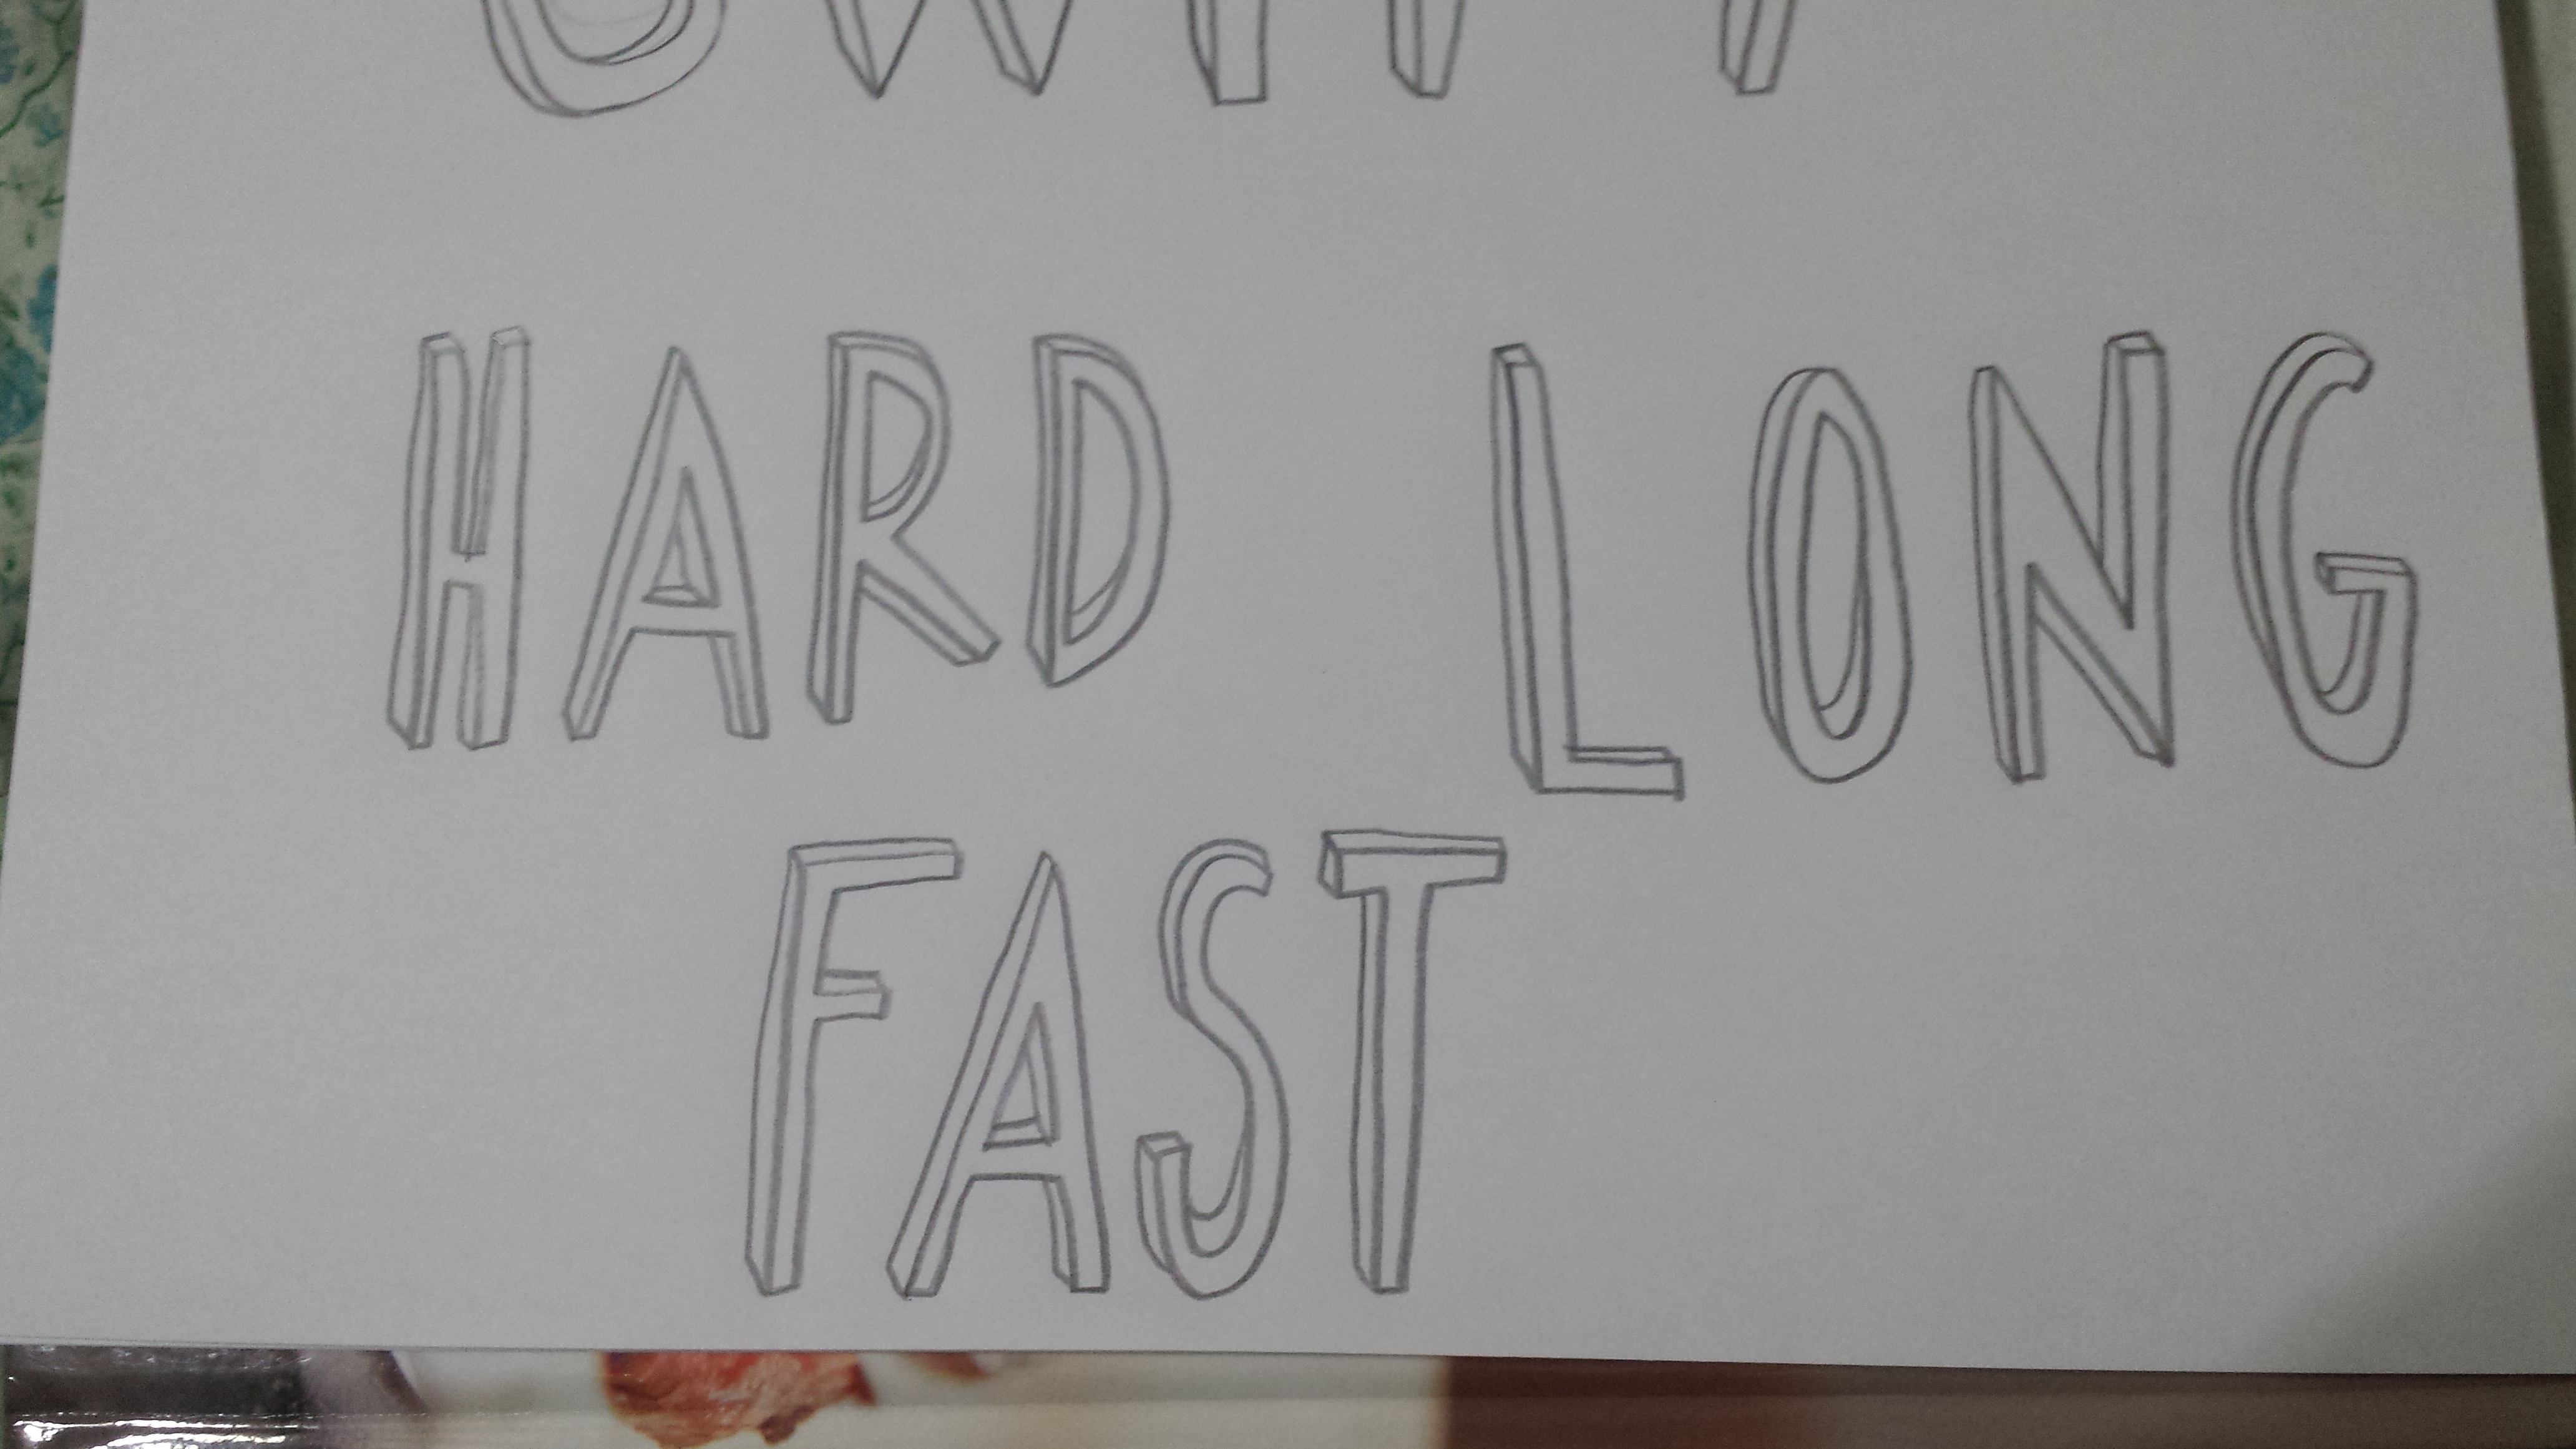 HARD LONG
FAST